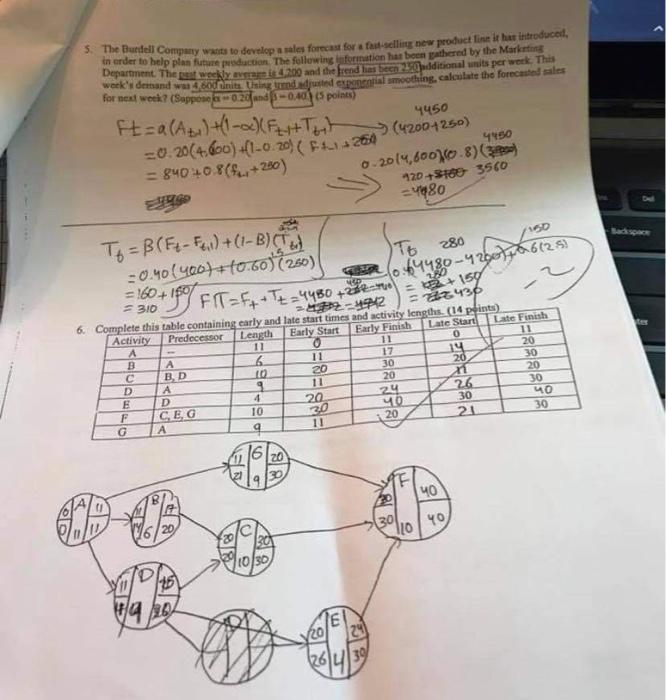 5. The Burdell Company wants to develop a sales forecast for a fast-selling new product line it has introduced,
in order to help plan future production. The following information has been gathered by the Marketing
Department. The past weekly average is 4,200 and the trend has been 250 additional units per week. This
week's demand was 4,600 units. Using trend adjusted exponential smoothing, calculate the forecasted sales
for next week? (Suppose α = 0.20 and β = 0.40.) (5 points)
Ft = α(At-1)+(1-α)(Ft-1+Tt-1)
= 0.20(4,600)+(1-0.20)(Ft-1+250)
= 840+0.8(ft-1+250)
4450
(4200+250)
4450
0.20(4,600)(0.8)
920 + 3560
=4480
Tt = β(Ft-Ft-1)+(1-B)(Tt-1)
= 0.40(400)+(0.60)(250)
=160+150
= 310
FIT=Ft+Tt=4480+
Tt 280
150
0.4(4480-4200)+0.6(25)
+150
430
-2
6. Complete this table containing early and late start times and activity lengths. (14 points)
Activity Predecessor Length Early Start Early Finish Late Start Late Finish
A -- 11 0 11 0 11
B A 6 11 17 14 20
C B, D 10 20 30 20 30
D A 9 11 20 11 20
E D 4 20 24 26 30
F C, E, G 10 30 40 30 40
G A 9 11 20 21 30
11 G 20
21 9 30
0 A 11
0 11 11
11 B 17
14 6 20
20 C 30
20 10 30
30 F 40
30 10 40
11 D
9
20 E 24
26 4 30
Del
Backspace